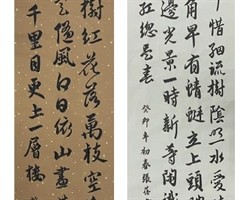 惜細流樹陰照水愛
角早有蜻蜓立上頭
邊光景一時新等閒識
紅總是春
癸卯年初春張
樹紅花落萬枝空
隨風白日依山盡
千里目更上一層樓